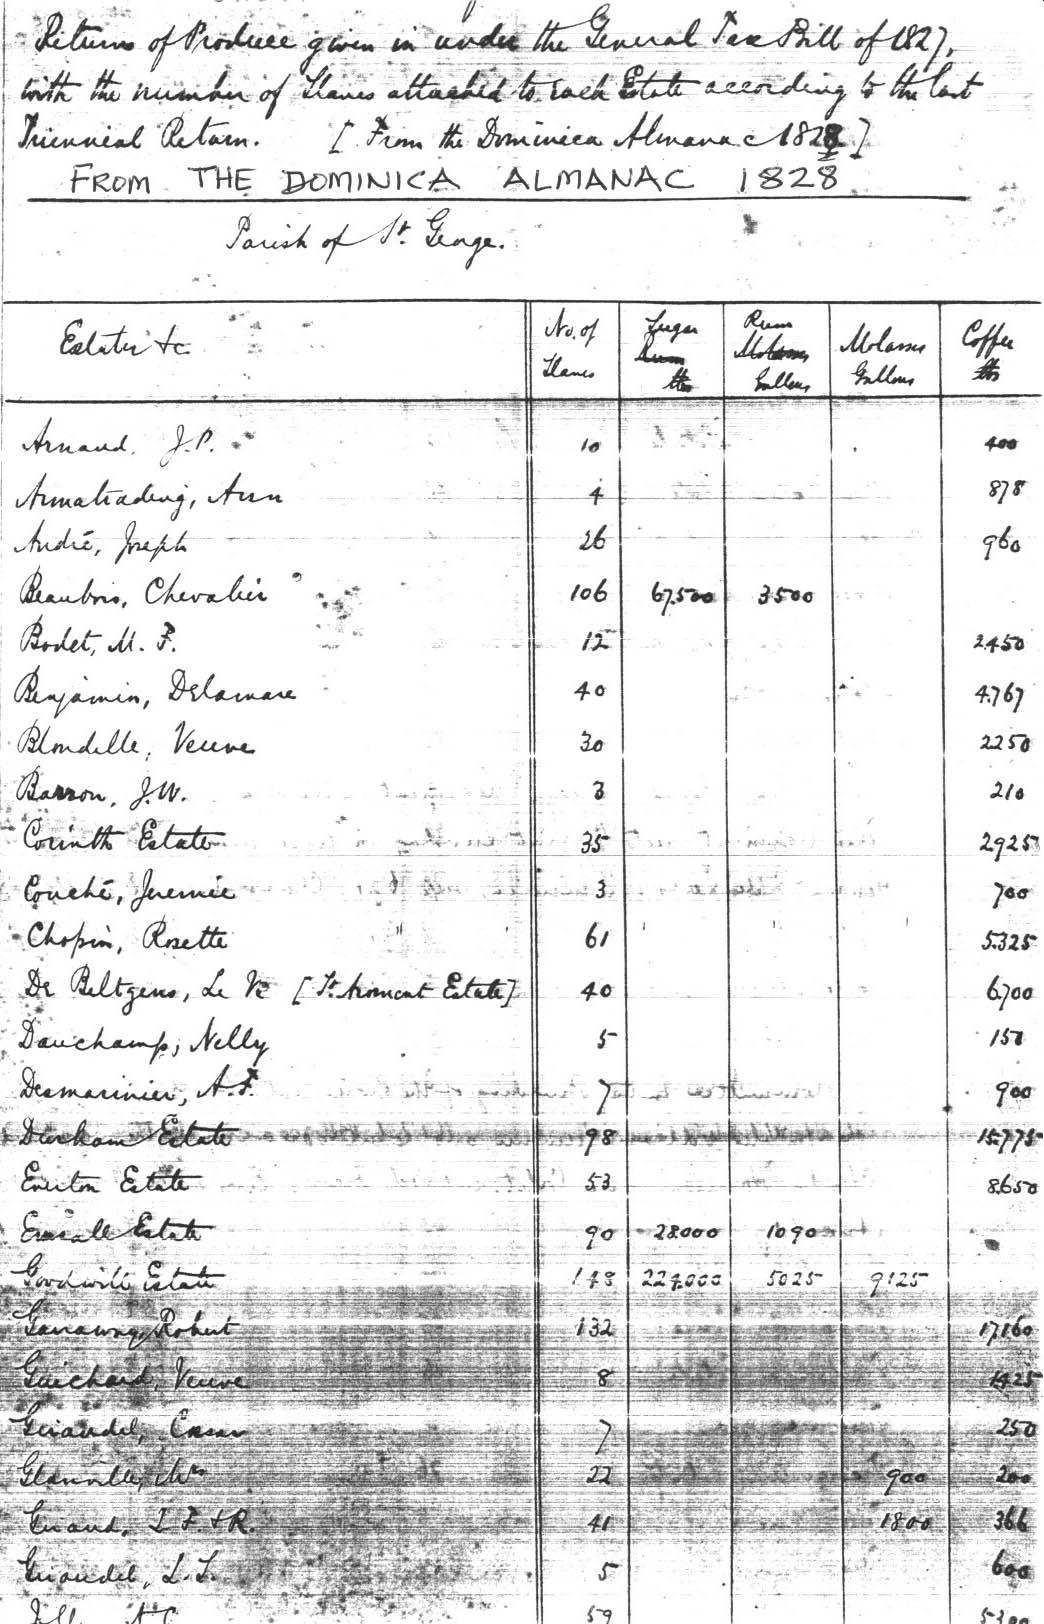 Returns of Produce given in under the General Tax Bill of 1827,
with the number of Slaves attached to each Estate according to the last
Triennial Return. [From the Dominica Almanac 1828]
FROM THE DOMINICA ALMANAC 1828
Parish of St. George.
Estates &c No. of Slaves Sugar Rum lbs Rum Molasses Gallons Molasses Gallons Coffee lbs
Arnaud, J.P. 10 400
Armatrading, Ann 4 878
André, Joseph 26 960
Beaubois, Chevalier 106 67,500 3500
Bodet, M. F. 12 2,450
Benjamin, Delamare 40 4,767
Blondelle, Veuve 30 2250
Barron, J.W. 3 210
Corinth Estate 35 2,925
Couché, Jeremie 3 700
Chopin, Rosette 61 5,325
De Beltgens, Le Ve [St Aroment Estate] 40 6,700
Dauchamp, Nelly 5 150
Desmarinier, A.F. 7 900
Durham Estate 98 15,775
Everton Estate 53 8,650
Emsall Estate 90 28,000 1090
Goodwill Estate 148 224,000 5025 9125
Garraway, Robert 132 17,160
Guichard, Veuve 8 1425
Giraudel, Cesar 7 250
Glanville, Mrs 22 900 200
Giraud, F. & R. 41 1800 366
Giraudel, L. 5 600
59 5300